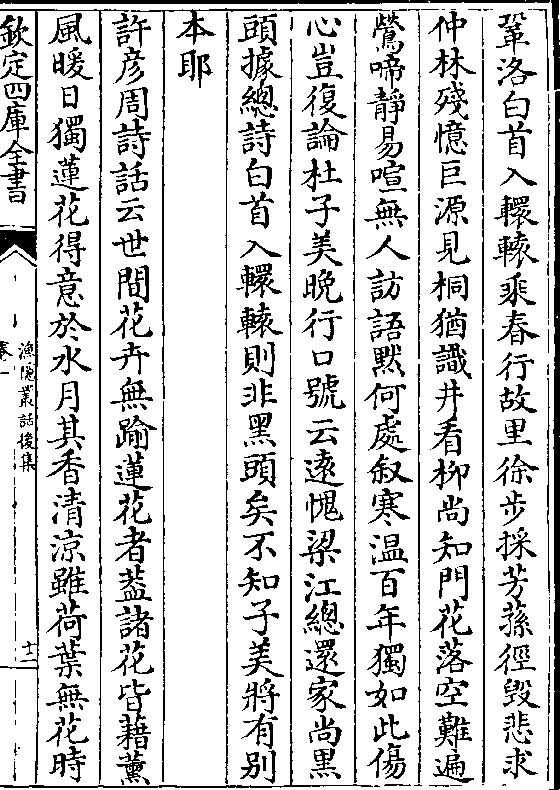 鞏洛白首入轘轅乘春行故里徐步採芳蓀徑毀悲求
仲林殘憶巨源見桐猶識井看柳尚知門花落空難遍
鶯啼靜易喧無人訪語黙何處敘寒溫百年獨如此傷
心豈復論杜子美晚行口號云遠愧梁江總還家尚黒
頭據總詩白首入轘轅則非黑頭矣不知子美將有别
本耶
許彦周詩話云世間花卉無踰蓮花者葢諸花皆藉薰
風暖日獨蓮花得意於水月其香清涼雖荷葉無花時
欽定四庫全書
漁隱叢話後集
卷一
十二